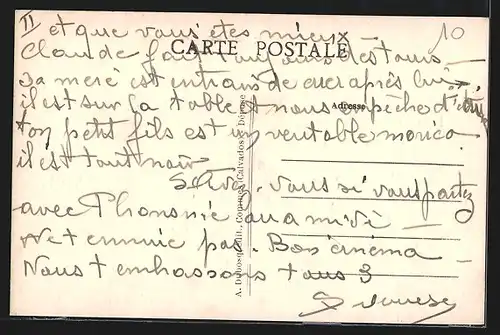 II
10
et que vous êtes mieux
CARTE POSTALE
Claude fait toujours des tours
sa mere est en train de
après lui
il est sur la table et nous empeche d'
Adresse
ton petit fils est un veritable morico
il est tout noir
vous si vous partez
avec Phonsine au midi
Net ennuie pas. Bon cinema
Nous t embrassons tous 3
A. Dubosq, édit., (Calvados). Déposé